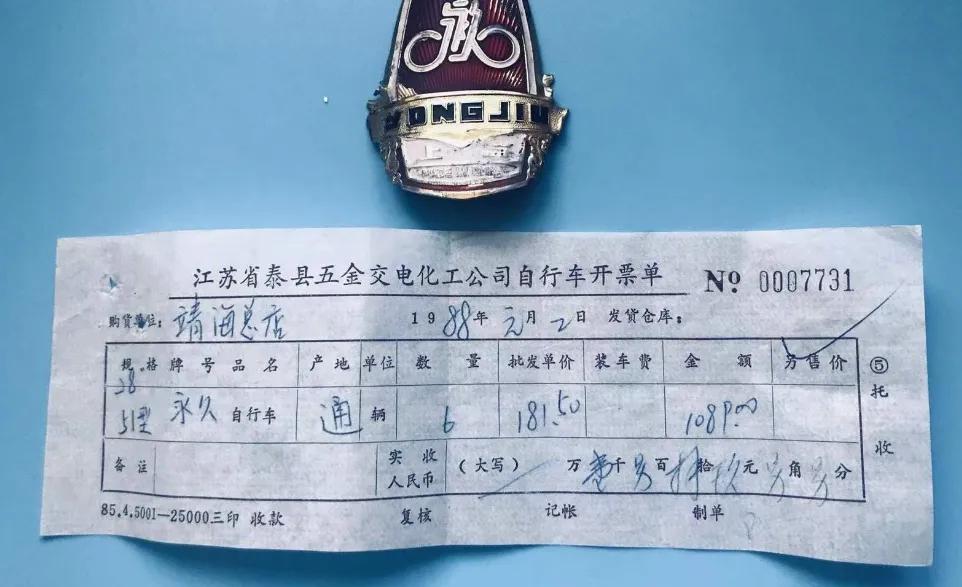 YONGJIU
上海
江苏省泰县五金交电化工公司自行车开票单 № 0007731
购货单位：靖海总店 1988年元月2日 发货仓库：
规格 牌号品名 产地 单位 数量 批发单价 装车费 金额 另售价
28
51型 永久自行车 通 辆 6 181.50 1089.00
备注 实收人民币 （大写） 万壹千另百捌拾玖元另角另分
⑤托收
85.4.5001—25000三印 收款 复核 记帐 制单